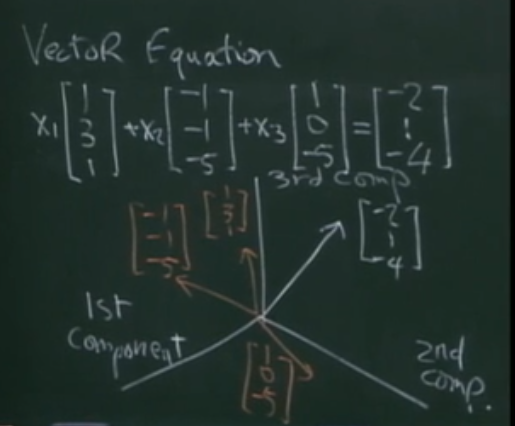 VectoR Equation
x1 [1 3 1] + x2 [-1 -1 -5] + x3 [1 0 -5] = [-2 1 -4]
3rd comp
[-1 -1 -5]
[1 3 1]
[-2 1 -4]
1st
component
[1 0 -5]
2nd
comp.